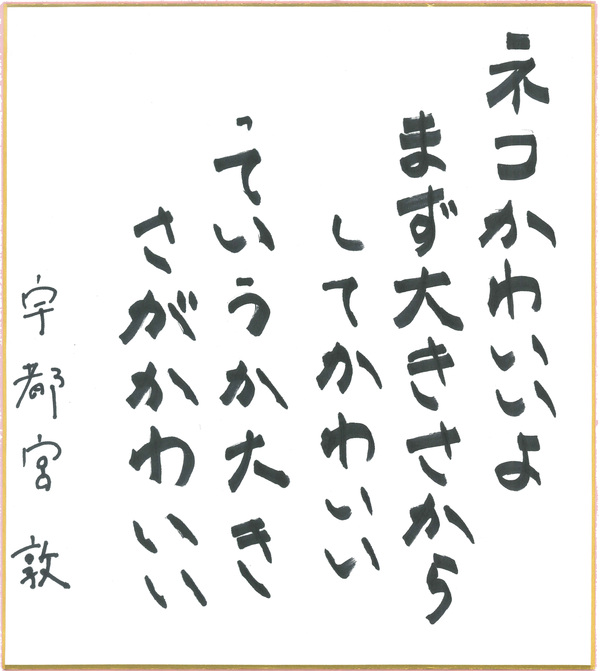 ネコかわいいよ
まず大きさから
してかわいい
っていうか大き
さがかわいい
宇都宮敦